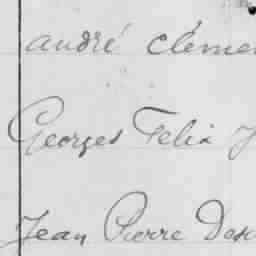 andré Clémen
Georges Felix J
Jean Pierre Des